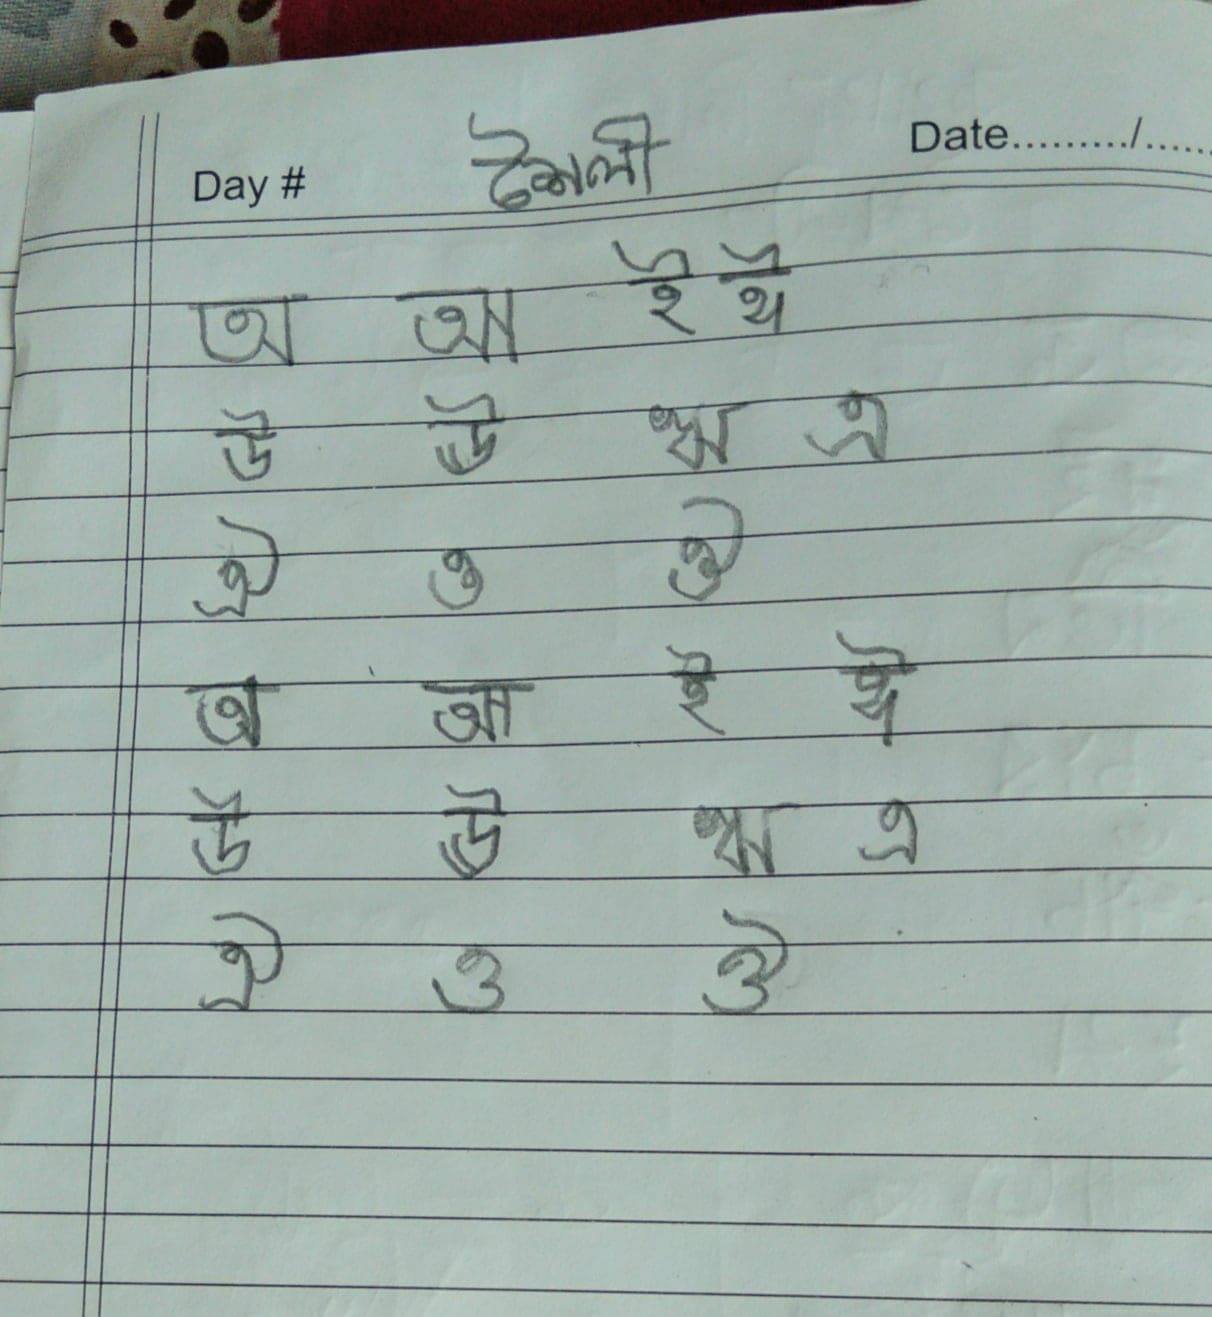 Day # ইমলী Date........./......
অ আ ই ঈ
উ ঊ ঋ এ
ঐ ও ঔ
অ আ ই ঈ
উ ঊ ঋ এ
ঐ ও ঔ